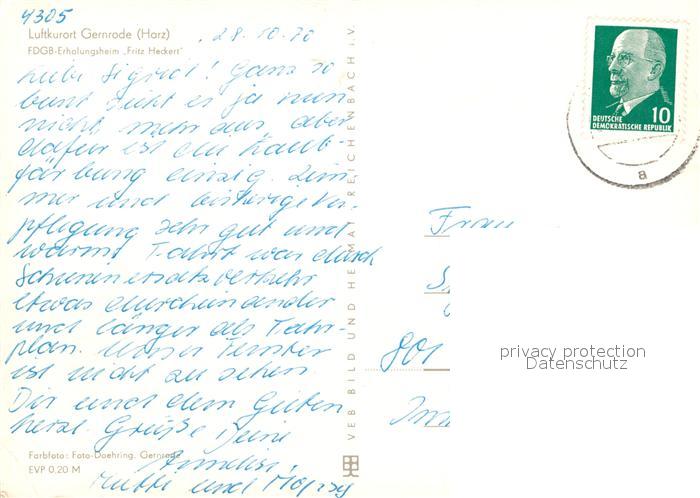 4305
Luftkurort Gernrode (Harz)
FDGB-Erholungsheim „Fritz Heckert"
28.10.70
Liebe Sigrid! Ganz so
bunt sieht es ja nun
nicht mehr aus, aber
dafür ist die Laub-
färbung einzig. Zim-
mer und bisherige Ver-
pflegung sehr gut und
warm. Fahrt war durch
Schienenersatzverkehr
etwas durcheinander
und länger als Fahr-
plan. Unser Fenster
ist nicht zu sehen
Dir und dem Guten
herzl. Grüße Deine
Annelies,
Mutti und
Farbfoto: Foto-Doehring, Gernrode
EVP 0,20 M
VEB BILD UND HEIMAT REICHENBACH i.V.
DEUTSCHE
DEMOKRATISCHE REPUBLIK
10
a
Frau
801
privacy protection
Datenschutz